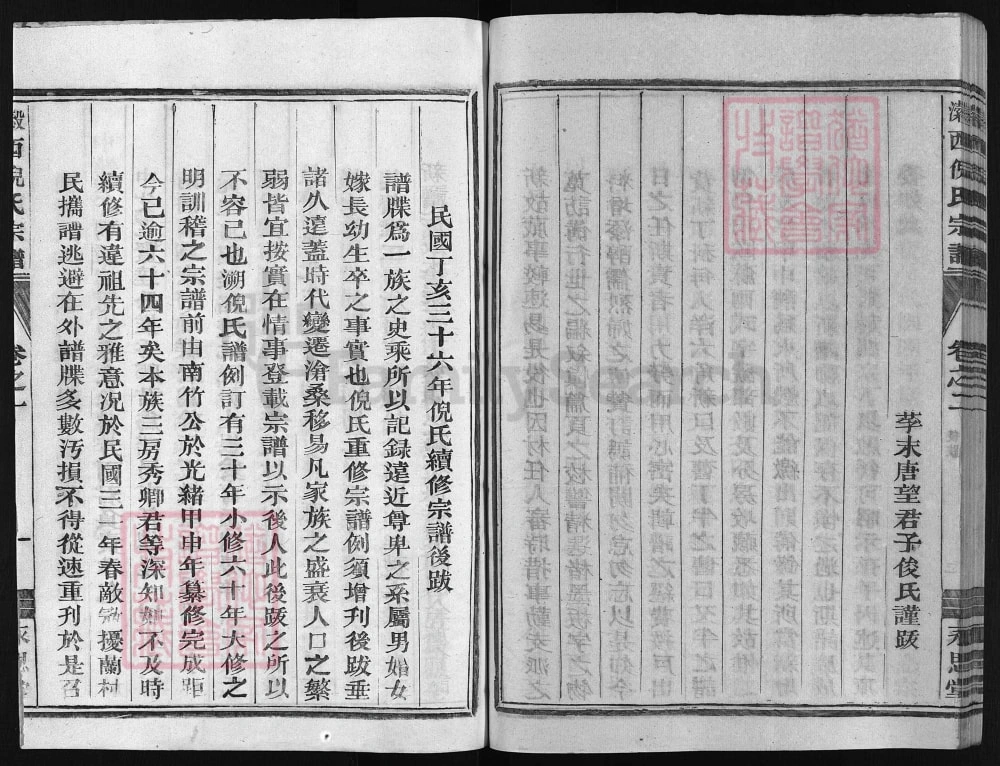 瀫西倪氏宗譜
卷之二
永思堂
莘末唐望君子俊氏謹跋
民國丁亥三十六年倪氏續修宗譜後跋
譜牒爲一族之史乘所以記錄遠近尊卑之系屬男婚女
嫁長幼生卒之事實也倪氏重修宗譜例須增刊後跋垂
諸久遠蓋時代變遷滄桑移易凡家族之盛衰人口之繁
弱皆宜按實在情事登載宗譜以示後人此後跋之所以
不容已也溯倪氏譜例訂有三十年小修六十年大修之
明訓稽之宗譜前由南竹公於光緒甲申年纂修完成距
今已逾六十四年矣本族三房秀卿君等深知如不及時
續修有違祖先之雅意况於民國三十一年春敵寇擾蘭村
民攜譜逃避在外譜牒多數汚損不得從速重刊於是召
瀫西倪氏宗譜
卷之
一
永思堂
FamilySearch